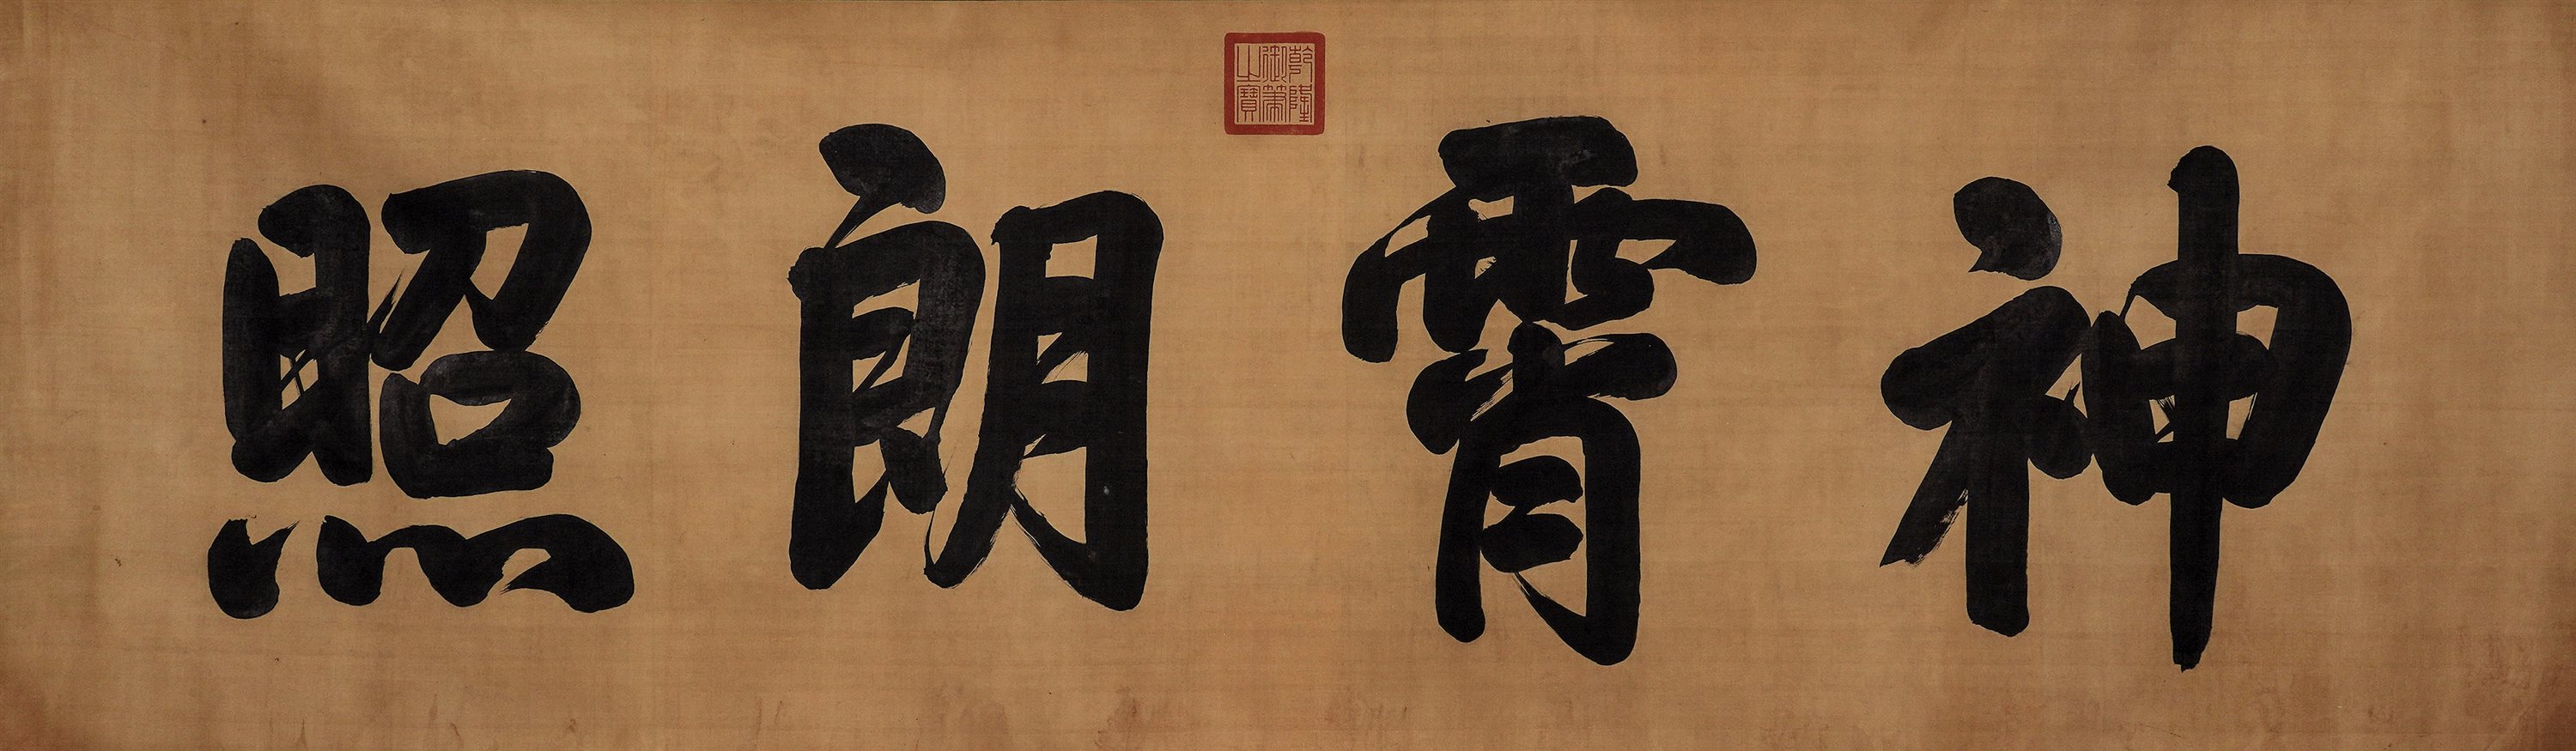 神霄朗照
乾隆御筆之寶